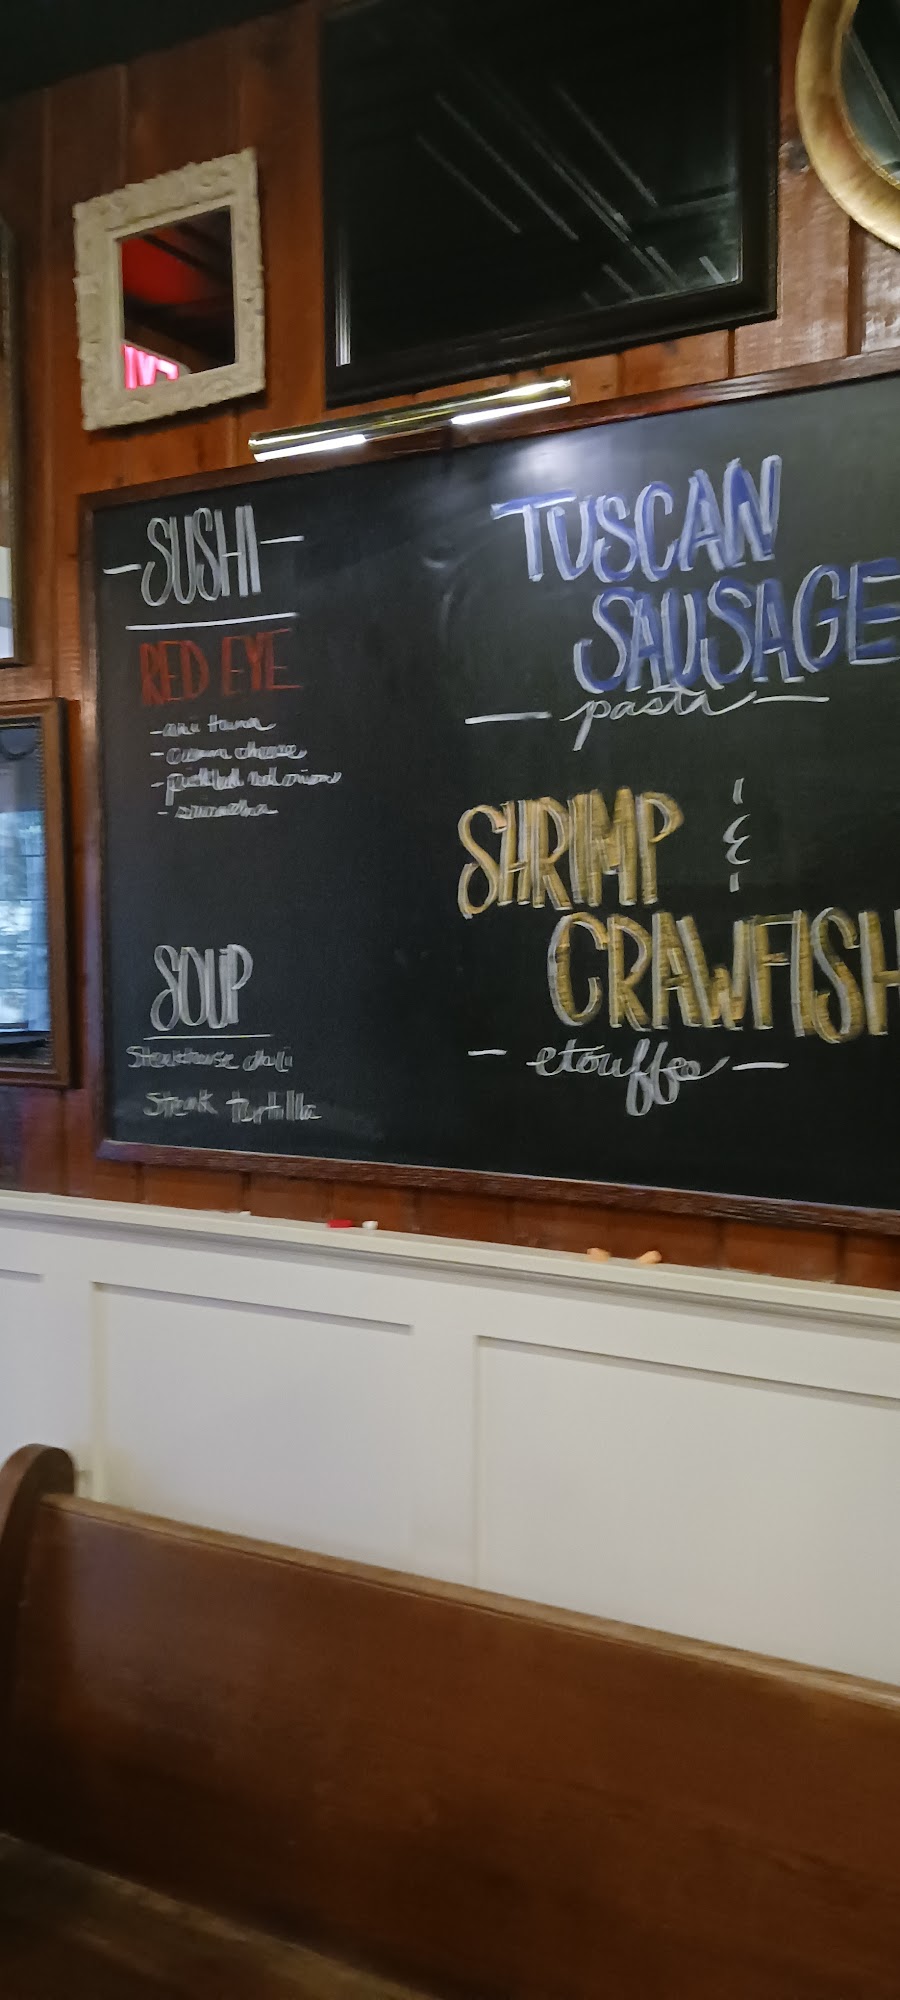 SUSHI
RED EYE
- ahi tuna
- cream cheese
- pickled red onion
- sriracha
SOUP
Steakhouse chili
Steak tortilla
TUSCAN
SAUSAGE
pasta
SHRIMP &
CRAWFISH
etouffee